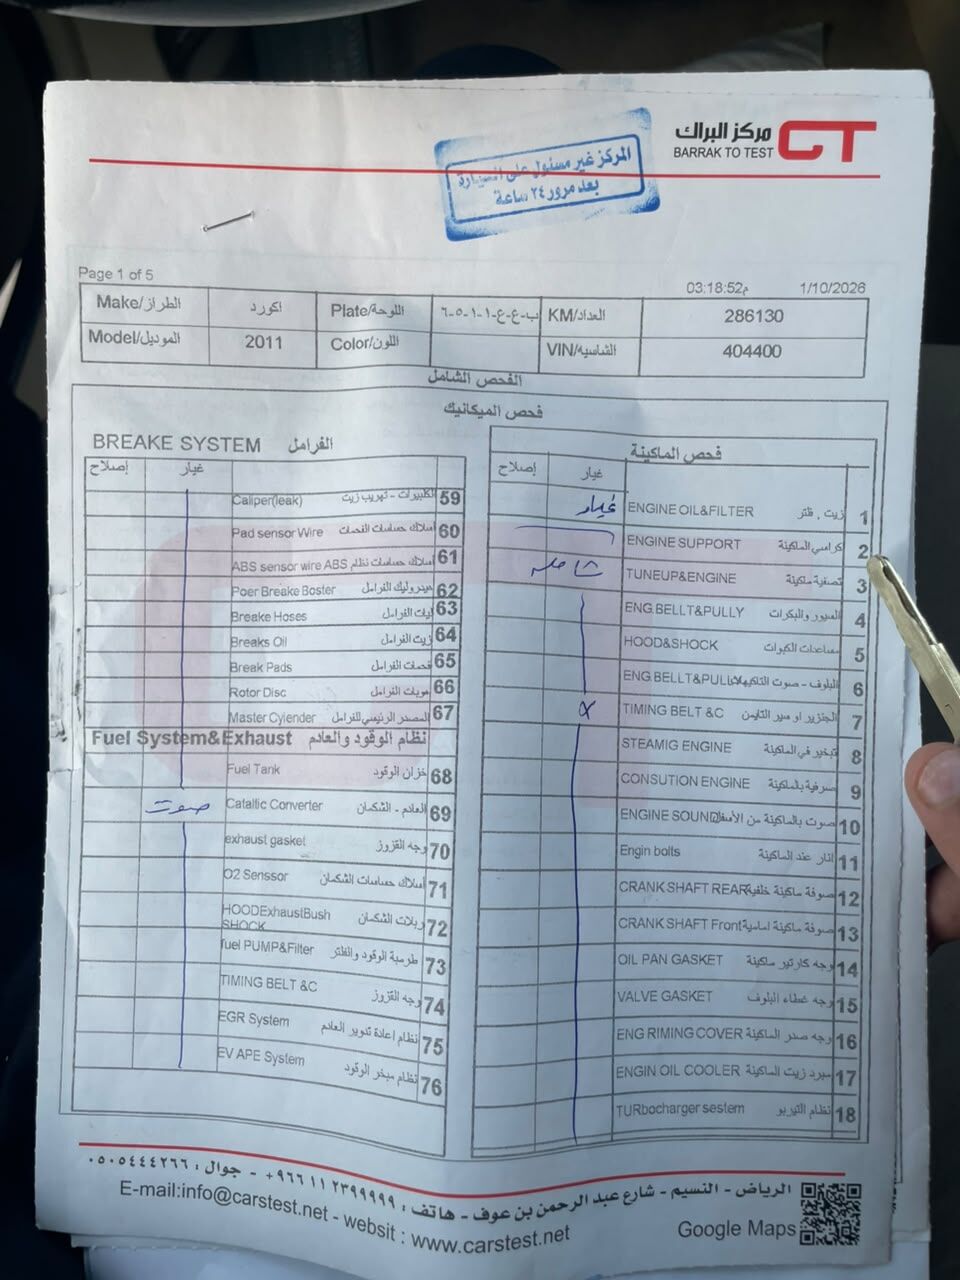 مركز البراك
BARRAK TO TEST
CT
المركز غير مسئول على السيارة
بعد مرور ٢٤ ساعة
Page 1 of 5
03:18:52م 1/10/2026
Make/الطراز اكورد Plate/اللوحة ب-ع-ع-١-١-٥-٦ KM/العداد 286130
Model/الموديل 2011 Color/اللون VIN/الشاسيه 404400
الفحص الشامل
فحص الميكانيك
BREAKE SYSTEM الفرامل
إصلاح غيار
Caliper(leak) الكليبرات - تهريب زيت 59
Pad sensor Wire اسلاك حساسات الفحمات 60
ABS sensor wire ABS اسلاك حساسات نظام 61
Poer Breake Boster هيدروليك الفرامل 62
Breake Hoses ليات الفرامل 63
Breaks Oil زيت الفرامل 64
Break Pads فحمات الفرامل 65
Rotor Disc هوبات الفرامل 66
Master Cylender المصدر الرئيسي للفرامل 67
Fuel System&Exhaust نظام الوقود والعادم
Fuel Tank خزان الوقود 68
صوت Cataltic Converter العادم - الشكمان 69
exhaust gasket وجه القزوز 70
O2 Senssor أسلاك حساسات الشكمان 71
HOODExhaustBush SHOCK ربلات الشكمان 72
fuel PUMP&Filter طرمبة الوقود والفلتر 73
TIMING BELT &C وجه القزوز 74
EGR System نظام إعادة تدوير العادم 75
EV APE System نظام مبخر الوقود 76
فحص الماكينة
إصلاح غيار
غيار ENGINE OIL&FILTER زيت , فلتر 1
ENGINE SUPPORT كراسي الماكينة 2
شامله TUNEUP&ENGINE تصفية ماكينة 3
ENG.BELLT&PULLY السيور والبكرات 4
HOOD&SHOCK مساعدات الكبوات 5
ENG.BELLT&PULL البلوف - صوت التاكيهات 6
x TIMING BELT &C الجنزير او سير التايمن 7
STEAMIG ENGINE تبخير في الماكينة 8
CONSUTION ENGINE صرفية بالماكينة 9
ENGINE SOUND صوت بالماكينة من الأسفل 10
Engin bolts اثار عند الماكينة 11
CRANK SHAFT REAR صوفة ماكينة خلفية 12
CRANK SHAFT Front صوفة ماكينة امامية 13
OIL PAN GASKET وجه كارتير ماكينة 14
VALVE GASKET وجه غطاء البلوف 15
ENG RIMING COVER وجه صدر الماكينة 16
ENGIN OIL COOLER مبرد زيت الماكينة 17
TURbocharger sestem نظام التيربو 18
الرياض - النسيم - شارع عبد الرحمن بن عوف - هاتف : ٩٦٦١١٢٣٩٩٩٩٩+ - جوال : ٠٥٠٥٤٤٤٢٦٦
E-mail:info@carstest.net - websit : www.carstest.net
Google Maps